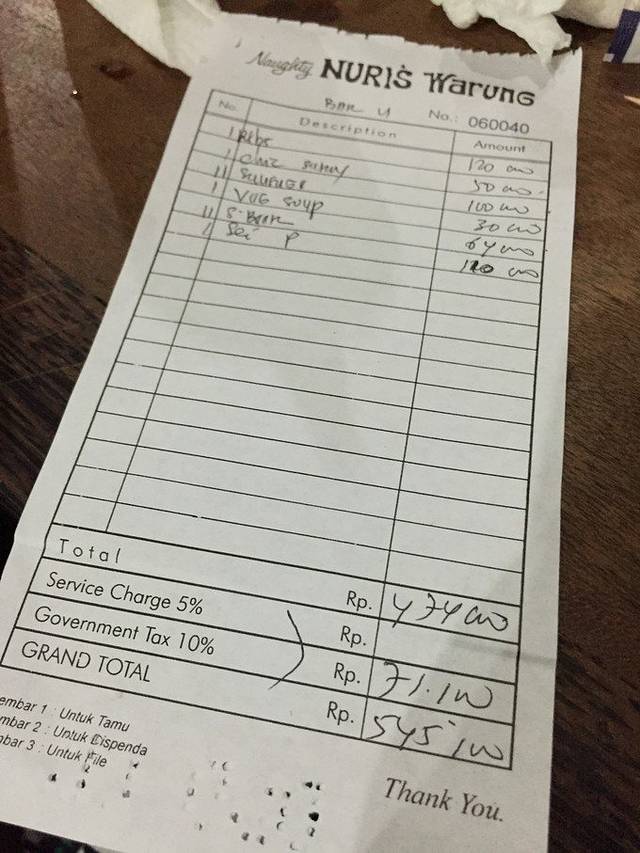 Naughty NURI'S Warung
BAR 4 No.: 060040
No. Description Amount
1 Ribs 120 000
1 50 000
11 100 000
1 VEG SOUP 30 000
11 S. BEER 64 000
1 110 000
Total Rp. 474 000
Service Charge 5% Rp.
Government Tax 10% Rp. 71.100
GRAND TOTAL Rp. 545 100
embar 1 : Untuk Tamu
mbar 2 : Untuk Dispenda
bar 3 : Untuk File
Thank You.